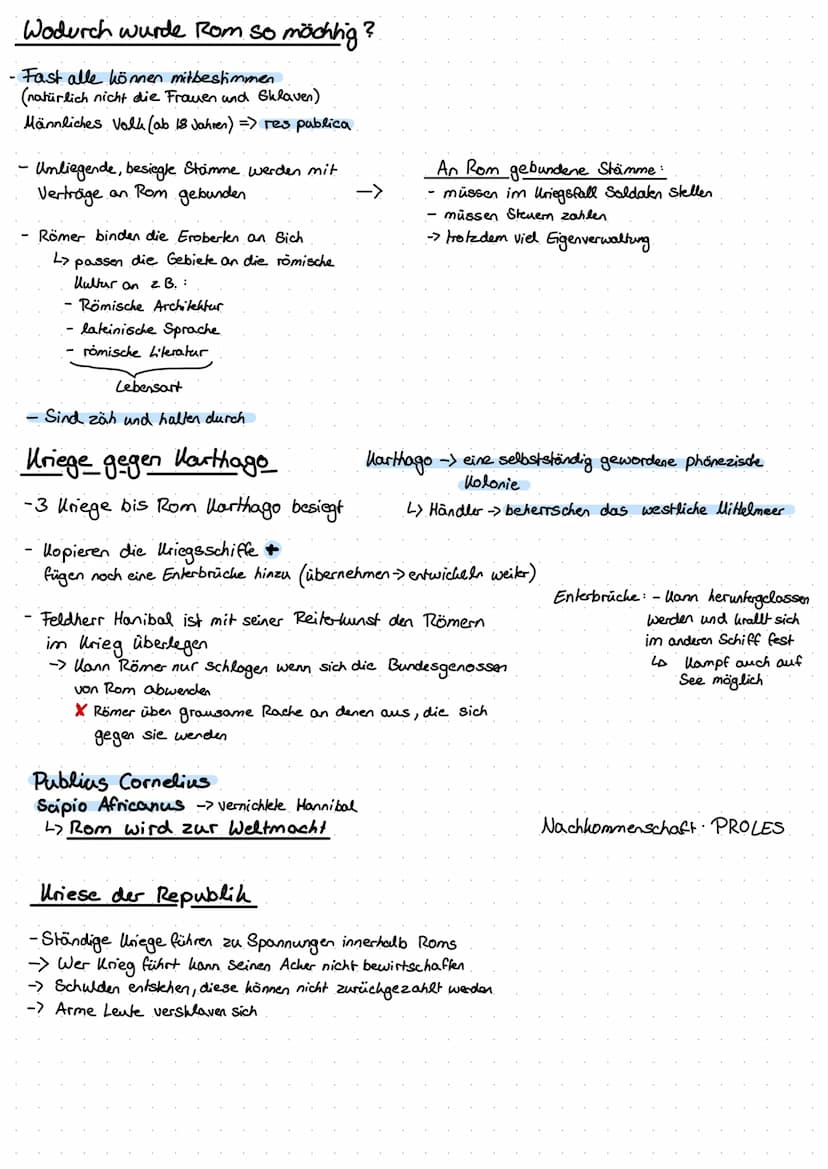 Wodurch wurde Rom so mächtig?
- Fast alle können mitbestimmen
(natürlich nicht die Frauen und Sklaven)
Männliches Volk (ab 18 Jahren) => res publica
- Umliegende, besiegte Stämme werden mit
Verträge an Rom gebunden
->
An Rom gebundene Stämme:
- müssen im Kriegsfall Soldaten stellen
- müssen Steuern zahlen
-> trotzdem viel Eigenverwaltung
- Römer binden die Eroberten an Sich
↳ passen die Gebiete an die römische
Kultur an z.B. :
- Römische Architektur
- lateinische Sprache
- römische Literatur
Lebensart
- Sind zäh und halten durch
Kriege gegen Karthago
Karthago -> eine selbstständig gewordene phönezische
Kolonie
↳ Händler -> beherrschen das westliche Mittelmeer
- 3 Kriege bis Rom Karthago besiegt
- Kopieren die Kriegsschiffe +
fügen noch eine Enterbrücke hinzu (übernehmen -> entwickeln weiter)
Enterbrücke: - Kann heruntergelassen
werden und krallt sich
im anderen Schiff fest
↳ Kampf auch auf
See möglich
- Feldherr Hanibal ist mit seiner Reiterkunst den Römern
im Krieg überlegen
-> Kann Römer nur schlagen wenn sich die Bundesgenossen
von Rom abwenden
✗ Römer üben grausame Rache an denen aus, die sich
gegen sie wenden
Publius Cornelius
Scipio Africanus -> vernichtete Hannibal
↳ Rom wird zur Weltmacht
Nachkommenschaft: PROLES
Kriese der Republik
- Ständige Kriege führen zu Spannungen innerhalb Roms
-> Wer Krieg führt kann seinen Acker nicht bewirtschaften
-> Schulden entstehen, diese können nicht zurückgezahlt werden
-> Arme Leute versklaven sich